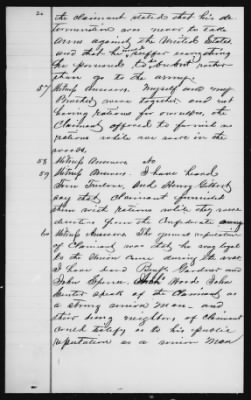 20
the claimant stated that his de-
termination was never to take
Arms against the United States
and that he would suffer everything
he possessed to be burnt rather
than go to the army.
57 Witness Answers. Myself and my
Brother were together and not
having rations for ourselves, the
Claimant offered to furnish us
rations while we were in the
woods.
58 Witness Answers No
59 Witness Answers. I have heard
Tom Fenlore, and Henry Gilbert
say that Claimant furnished
them with rations while they were
deserters from the Confederate army
60 Witness Answers The general reputation
of Claimant was that he was loyal
to the Union cause during the war.
I have heard Benj. Gardner and
John Spence, Woods John
Hunter speak of the Claimant as
a strong union man - and
their being neighbors of claimant
could testify as to his public
reputation as a union man